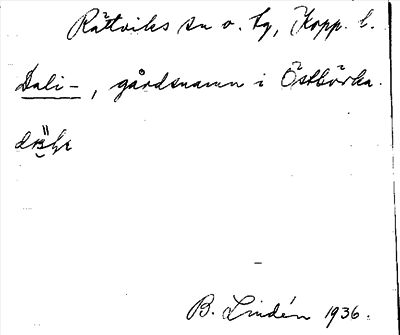 Rättviks sn o. tg, Kopp. l.
Dali-, gårdsnamn i Östbörka.
B. Lindén 1936.